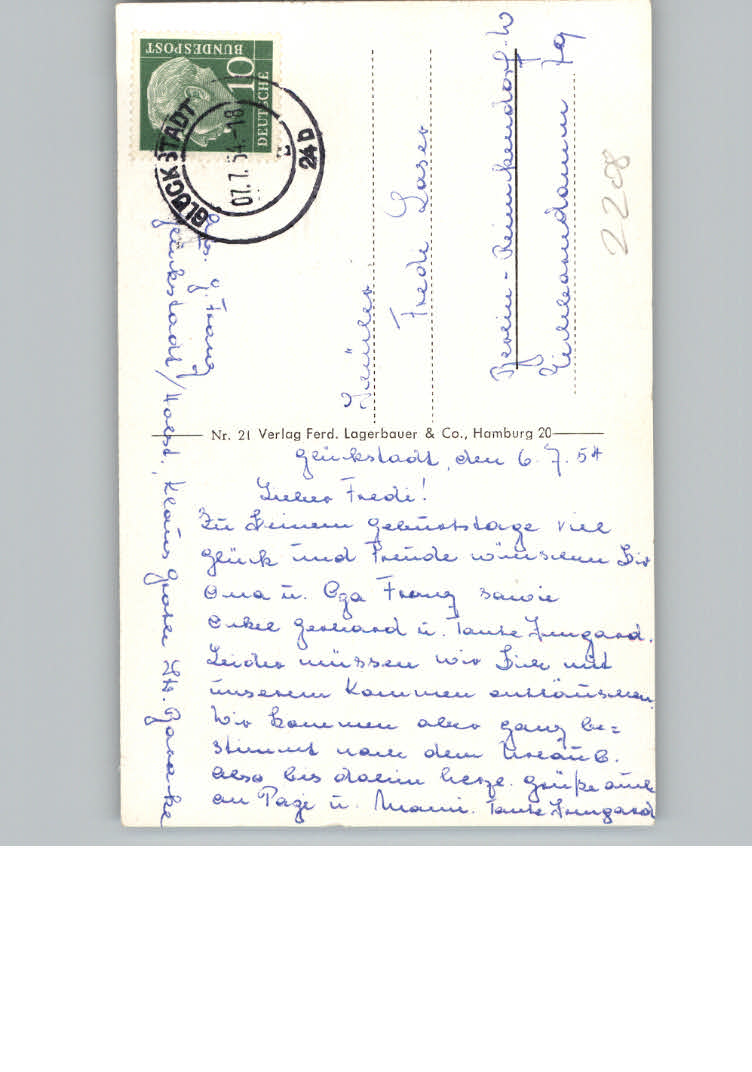 DEUTSCHE
BUNDESPOST
10
GLÜCKSTADT
07.7.54.-18
24b
Schüler
Fredi Laser
Berlin-Reinickendorf-W
79
2208
Abs. G. Franz
Glückstadt/Holst., Klaus Groth Str. Baracke
Nr. 21 Verlag Ferd. Lagerbauer & Co., Hamburg 20
Glückstadt, den 6.7.54
Lieber Fredi!
Zu Deinem Geburtstage viel
Glück und Freude wünschen Dir
Oma u. Opa Franz sowie
Onkel Gerhard u. Tante Irmgard.
Leider müssen wir Dich mit
unserem Kommen enttäuschen.
Wir kommen aber ganz be=
stimmt nach dem Urlaub.
Also bis dahin herzl. Grüße auch
an Papi u. Mami. Tante Irmgard